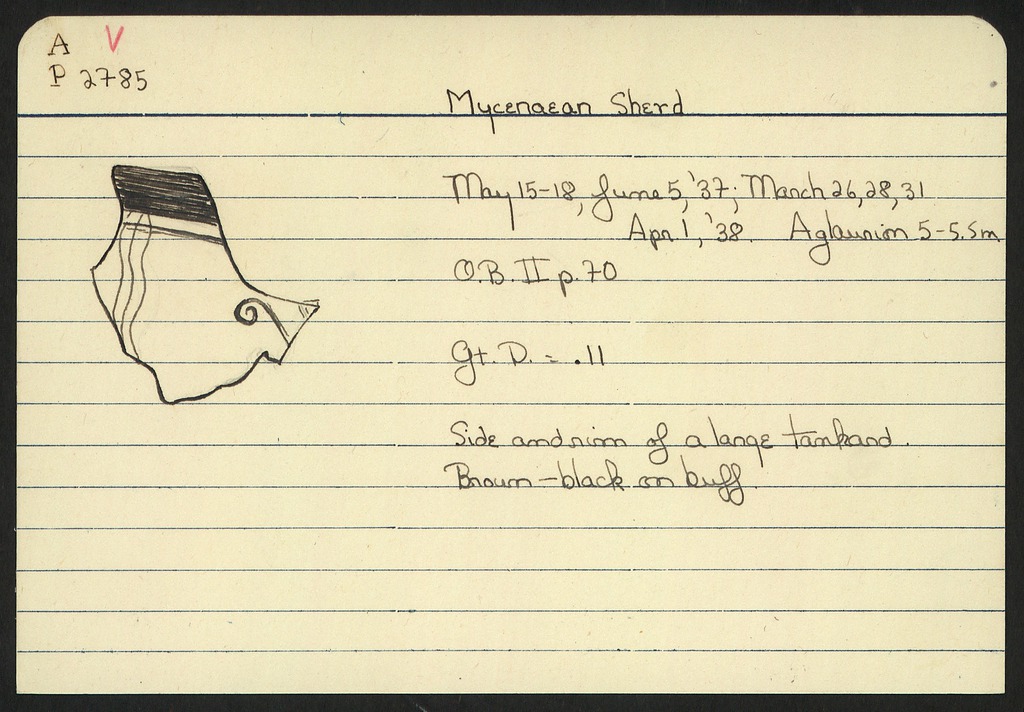 A V
P 2785
Mycenaean Sherd
May 15-18, June 5, '37; March 26, 28, 31
Apr 1, '38. Aglaurion 5-5.5m
O.B. II p. 70
Gt. D. = .11
Side and rim of a large tankard.
Brown-black on buff.